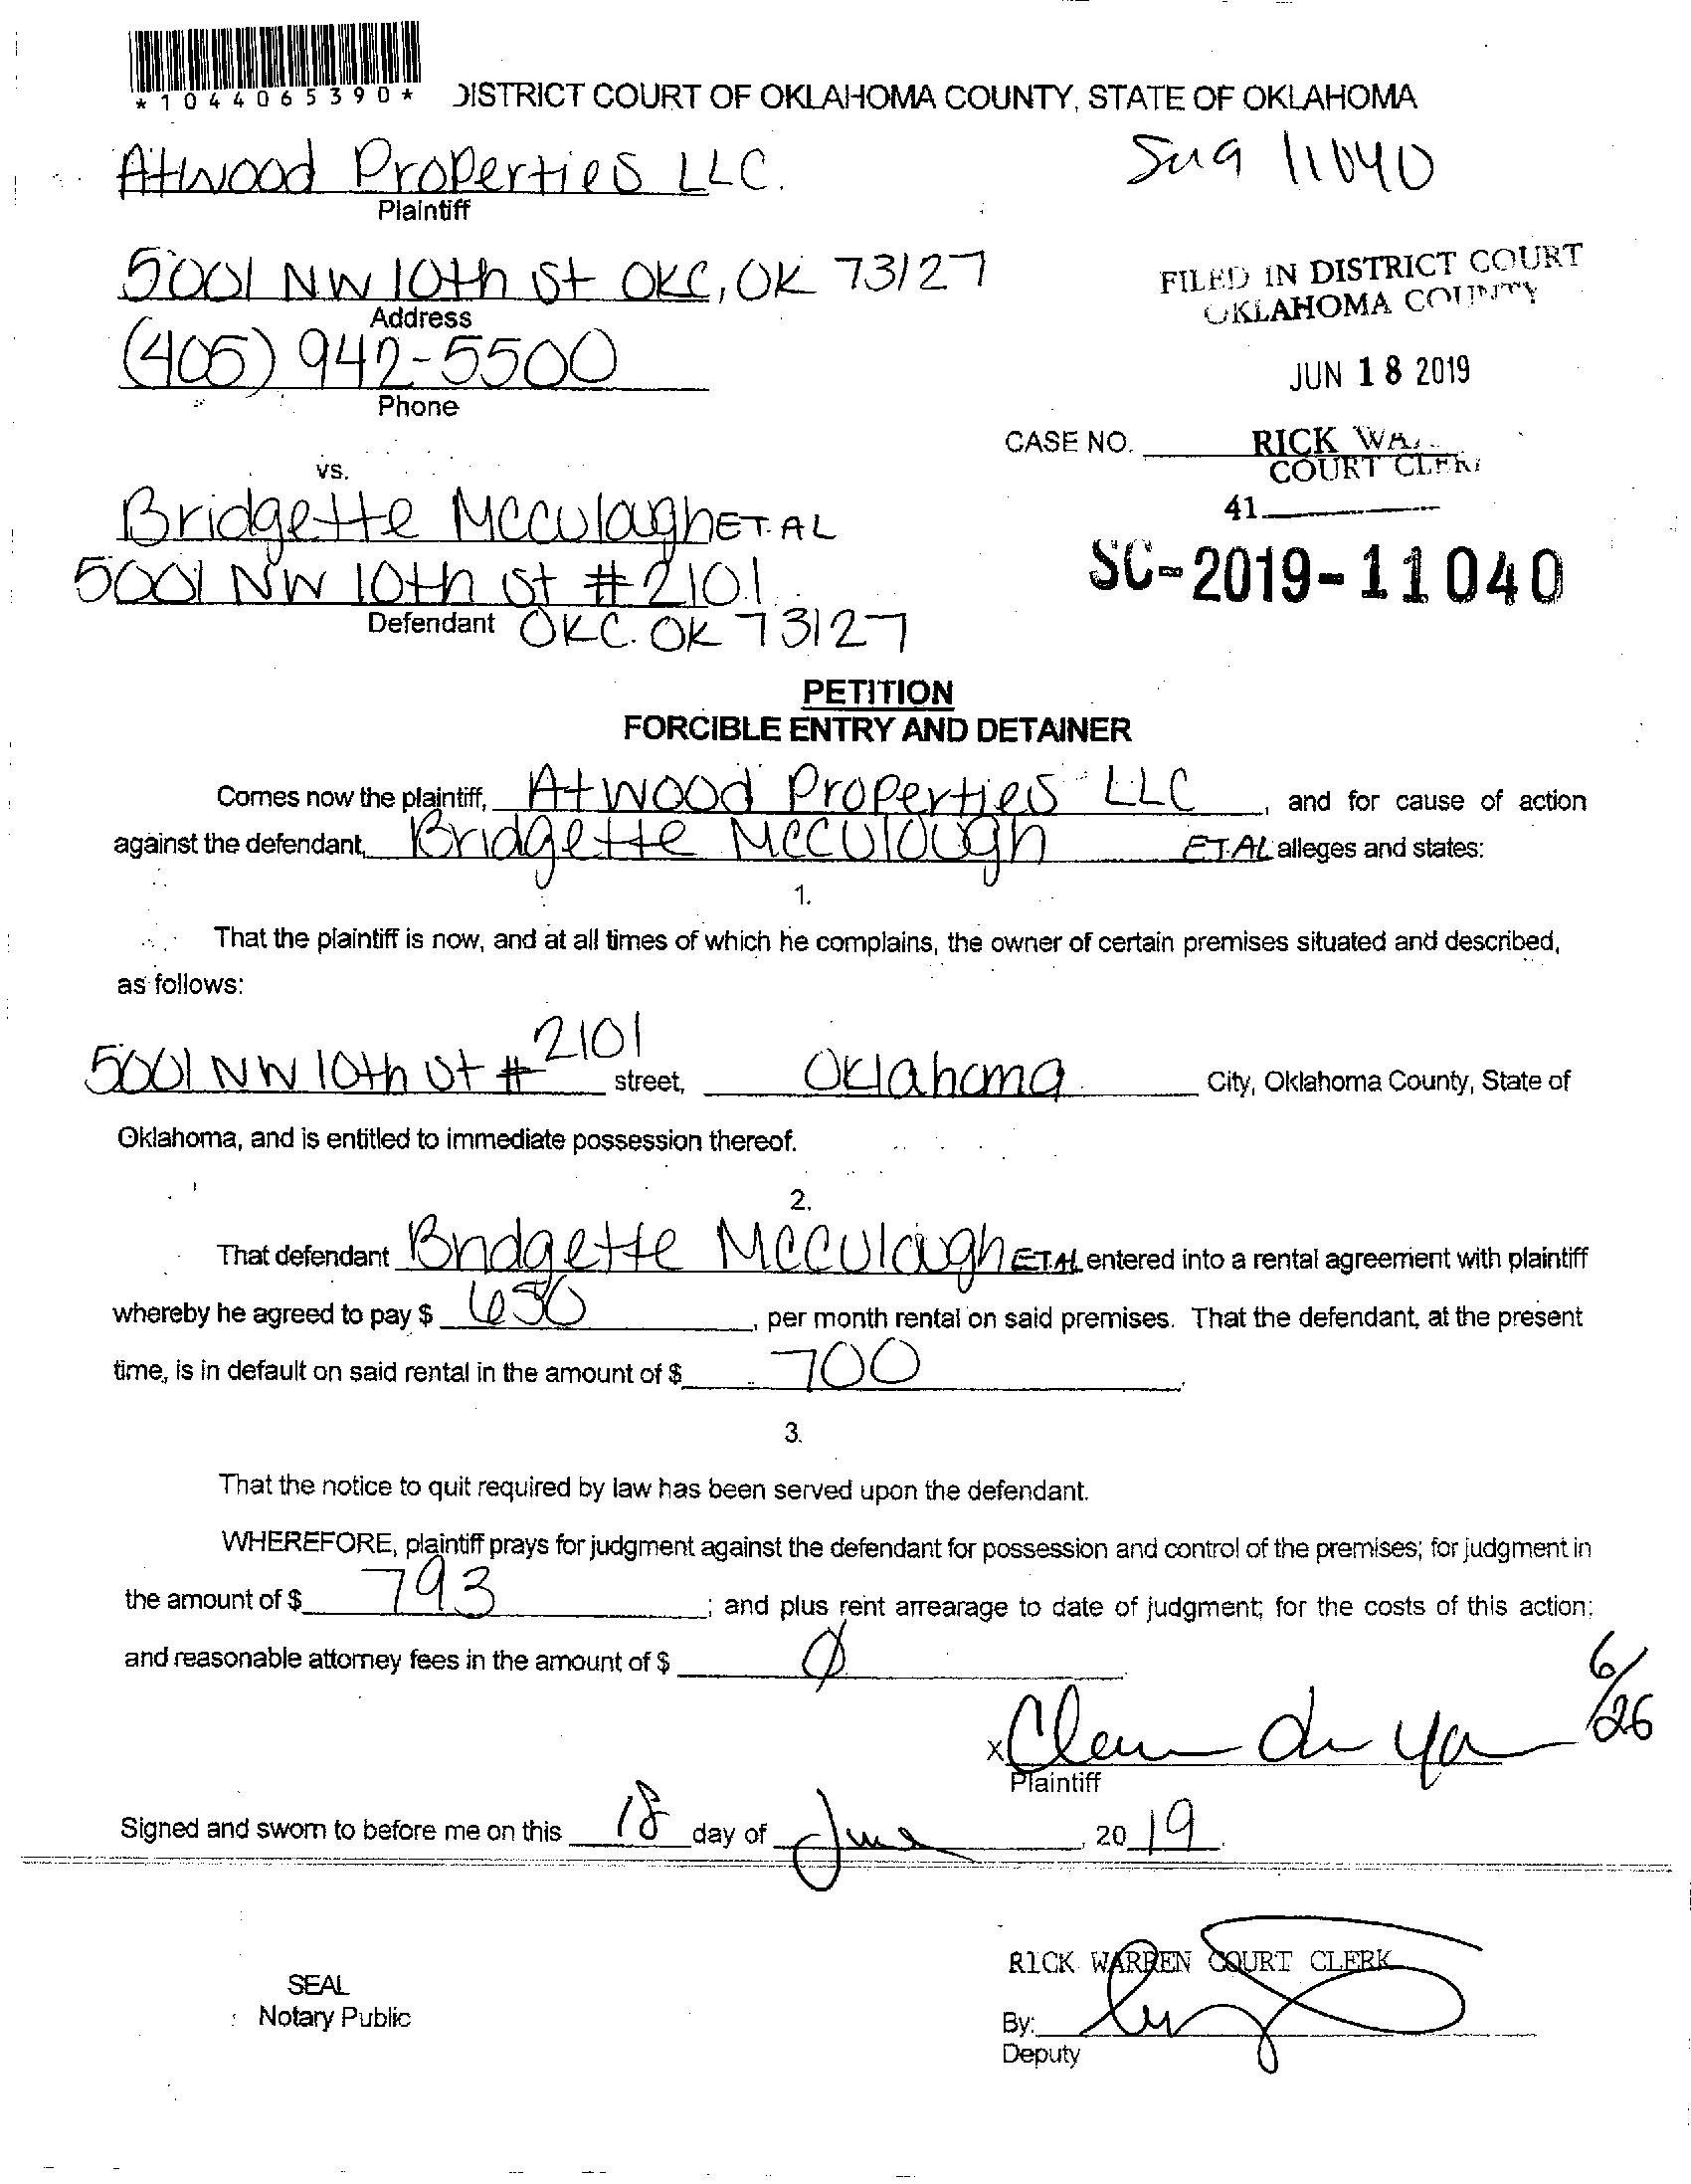 *1044065390*
DISTRICT COURT OF OKLAHOMA COUNTY, STATE OF OKLAHOMA
Atwood Properties LLC.
11040
Plaintiff
5001 NW 10th St OKC, OK 73127
Address
FILED IN DISTRICT COURT
OKLAHOMA COUNTY
(405) 942-5500
JUN 18 2019
Phone
CASE NO.
RICK
COURT CLERK
vs.
41
Bridgette McCulough ET. AL
SC-2019-11040
5001 NW 10th St #2101
Defendant OKC. OK 73127
PETITION
FORCIBLE ENTRY AND DETAINER
Comes now the plaintiff, Atwood Properties LLC, and for cause of action
against the defendant, Bridgette McCulough ET.AL alleges and states:
1.
That the plaintiff is now, and at all times of which he complains, the owner of certain premises situated and described,
as follows:
5001 NW 10th St # 2101 street, Oklahoma City, Oklahoma County, State of
Oklahoma, and is entitled to immediate possession thereof.
2.
That defendant Bridgette McCulough ET.AL entered into a rental agreement with plaintiff
whereby he agreed to pay $ 650, per month rental on said premises. That the defendant, at the present
time, is in default on said rental in the amount of $ 700.
3.
That the notice to quit required by law has been served upon the defendant.
WHEREFORE, plaintiff prays for judgment against the defendant for possession and control of the premises; for judgment in
the amount of $ 793; and plus rent arrearage to date of judgment; for the costs of this action;
and reasonable attorney fees in the amount of $ Ø.
6/26
x
Plaintiff
Signed and sworn to before me on this 18 day of June, 2019.
RICK WARREN COURT CLERK
SEAL
Notary Public
By:
Deputy